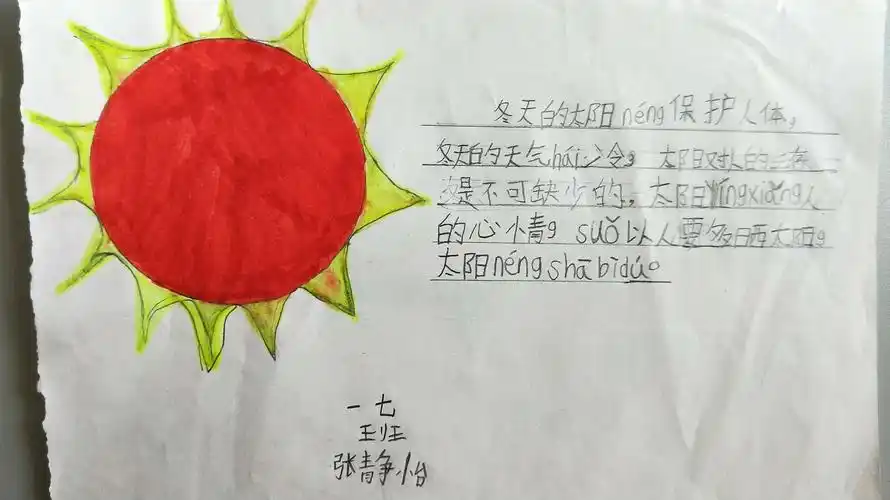 冬天的太阳néng保护人体，
冬天的天气hái冷。太阳对人的
是不可缺少的，太阳yǐngxiǎng人
的心情。suǒ以人要多晒太阳。
太阳néngshābìdú。
一七
班
张静怡